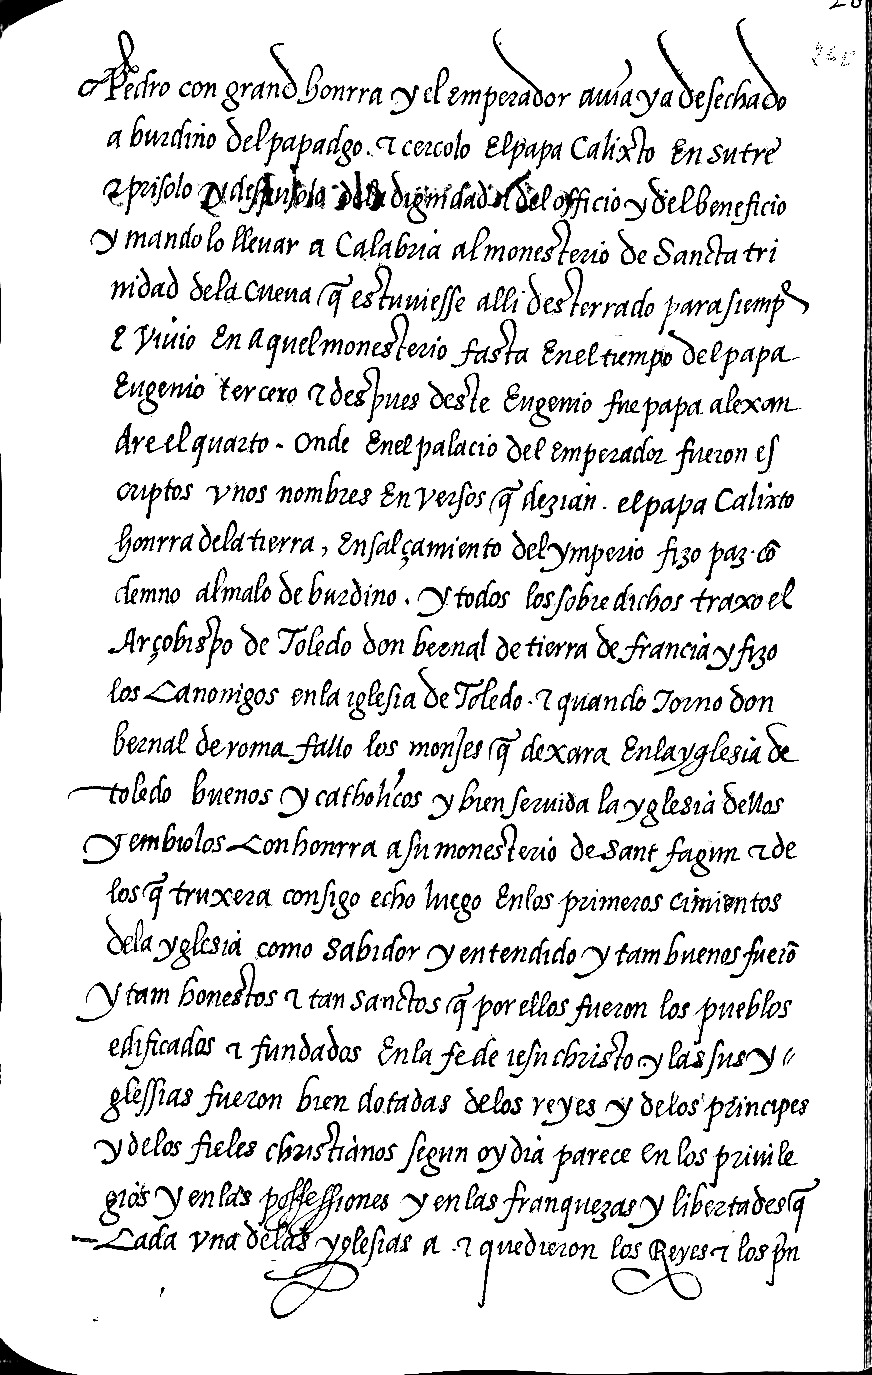 Pedro con grand honrra y el emperador auia ya desechado
a burdino del papadgo. τ cercolo El papa Calixto En sutre
τ prisolo y despusolo dela dignidad τ del officio y del beneficio
y mando lo lleuar a Calabria al monesterio de Sancta tri
nidad dela cueua q̃ estuuiesse alli desterrado para siemp̃
E viuio En aquel monesterio fasta Enel tiempo del papa
Eugenio tercero τ despues deste Eugenio fue papa alexan
dre el quarto - onde Enel palacio del Emperador fueron es
criptos vnos nombres En versos q̃ dezian. el papa Calixto
honrra dela tierra, Ensalçamiento del ymperio fizo paz. cõ
demno al malo de burdino. y todos los sobre dichos traxo el
Arçobispo de Toledo don bernal de tierra de francia y fizo
los Canonigos en la iglesia de Toledo. τ quando Torno don
bernal de roma fallo los monjes q̃ dexara En la yglesia de
toledo buenos y catholicos y bien seruida la yglesia dellos
y embiolos Con honrra a su monesterio de Sant fagun τ de
los q̃ truxera consigo echo luego En los primeros cimientos
dela yglesia como sabidor y entendido y tam buenos fuerõ
y tam honestos τ tan sanctos q̃ por ellos fueron los pueblos
edificados τ fundados En la fe de iesu christo y las sus y〃
glessias fueron bien dotadas delos reyes y delos principes
y delos fieles christianos segun oy dia parece en los priuile
gios y en las possessiones y en las franquezas y libertades q̃
Cada vna delas yglesias a. τ quedieron los Reyes τ los p̃n